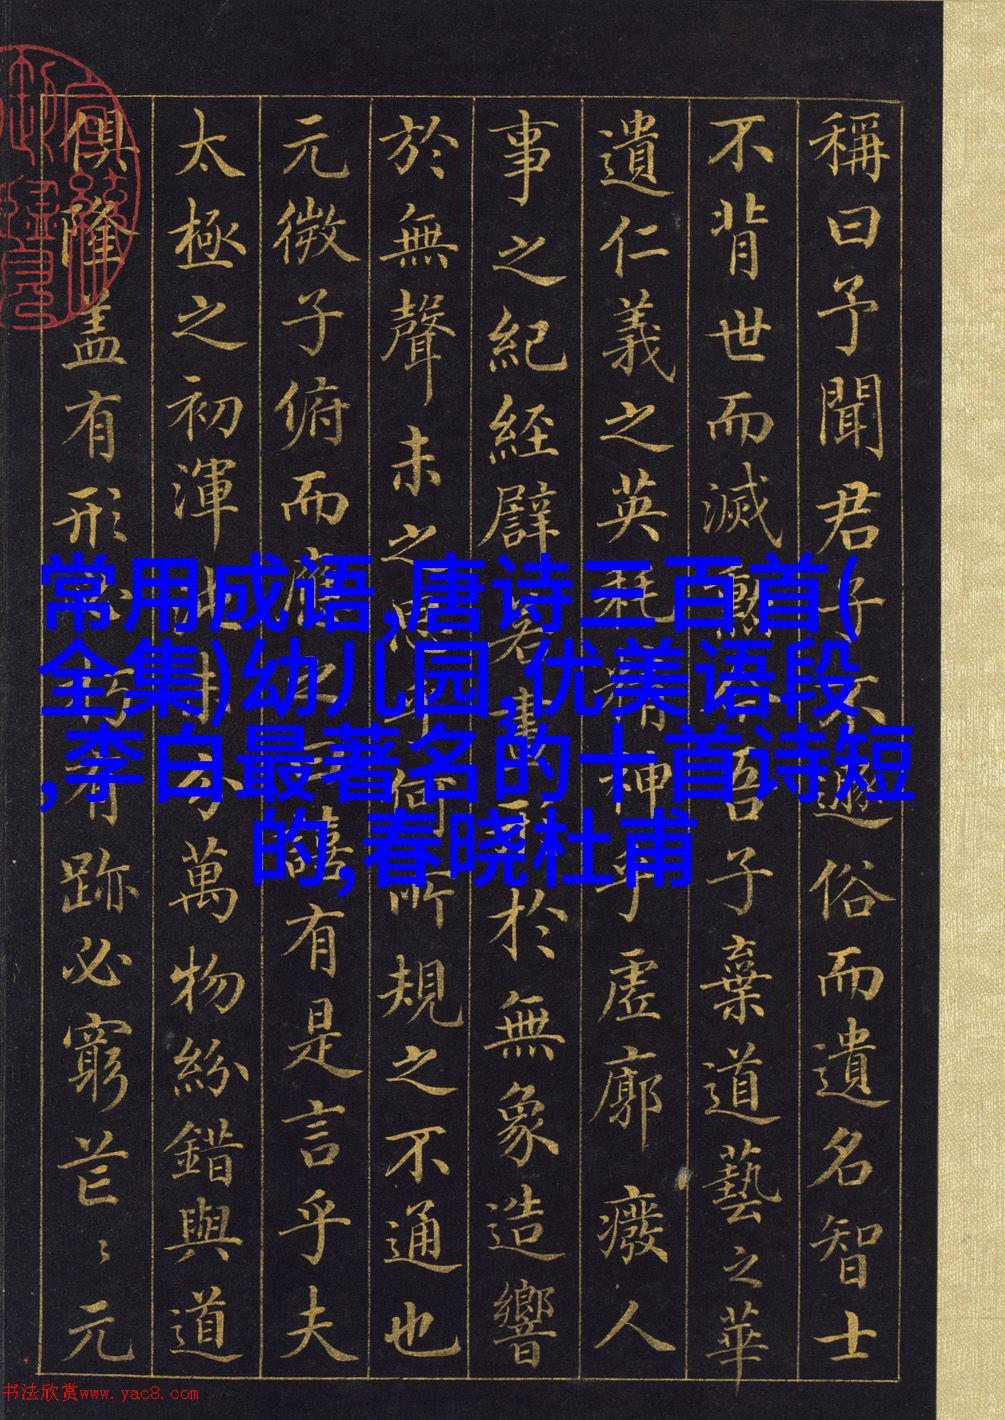 稱曰予聞君子不遯俗而遺名智士
不背世而滅勳吾子棄道藝之華
遺仁義之英耗精神乎虛廓癈人
事之紀經譬若畫形於無象造響
於無聲未之思乎何所規之不通也
元微子俯而應之曰譆有是言乎夫
太極之初渾分萬物紛錯與道
俱隆盖有形必朽有跡必窮芒〻元
常用成语,唐诗三百首(
全集)幼儿园,优美语段
,李白最著名的十首诗短
的,春晓杜甫
书法欣赏www.yac8.com